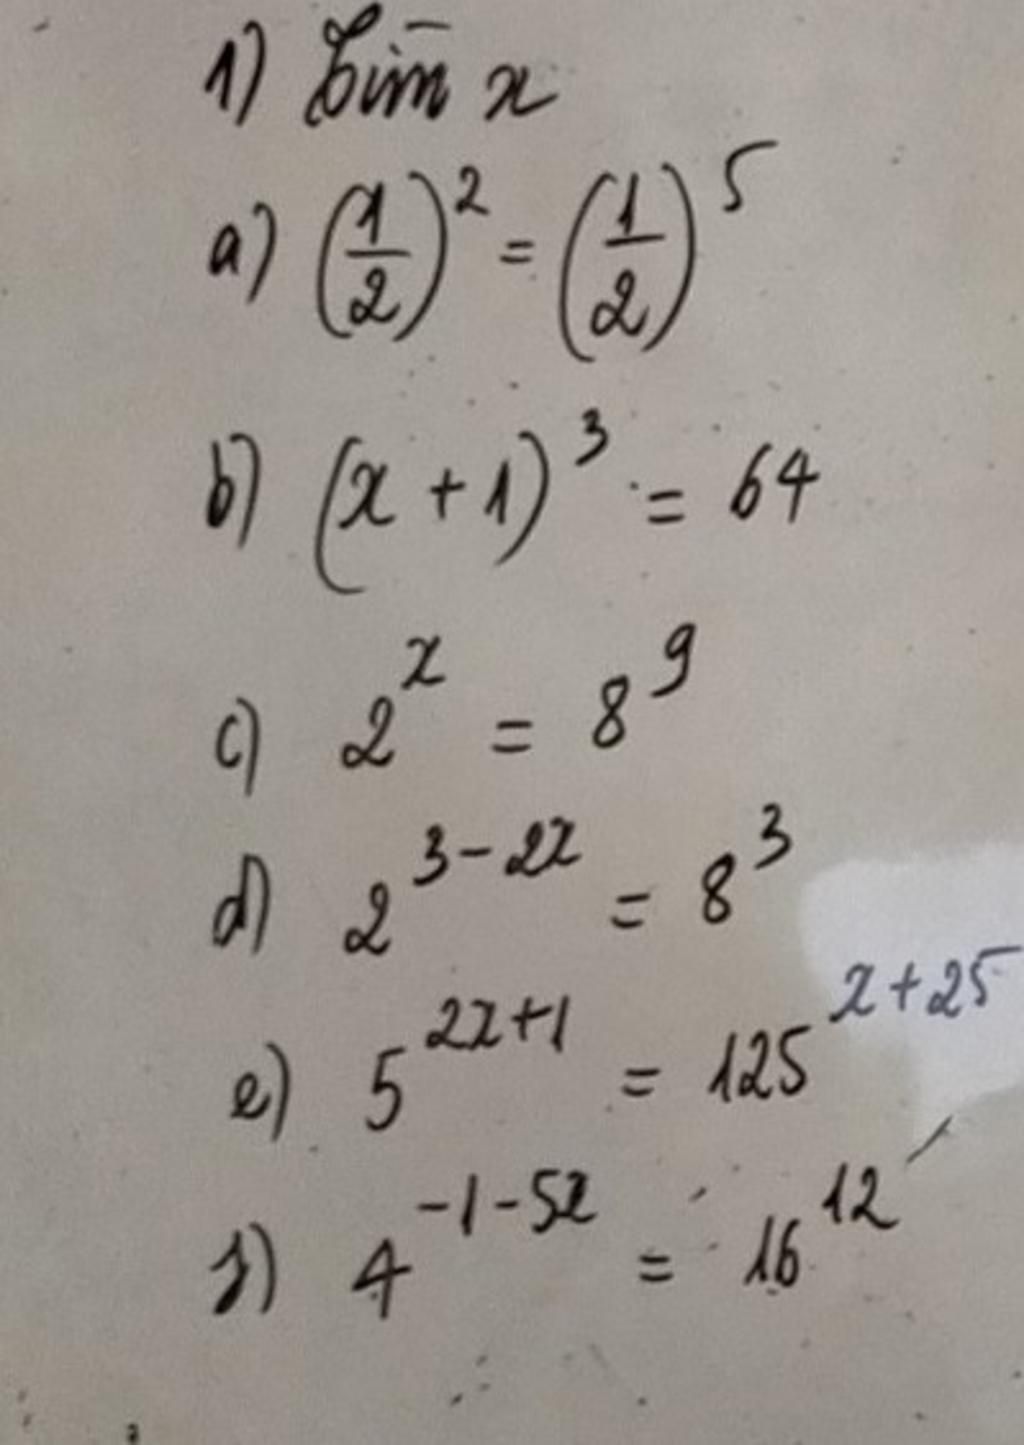 1) Tìm x
a) (1/2)^2 = (1/2)^5
b) (x + 1)^3 = 64
c) 2^x = 8^9
d) 2^{3-2x} = 8^3
e) 5^{2x+1} = 125^{x+25}
f) 4^{-1-5x} = 16^{12}